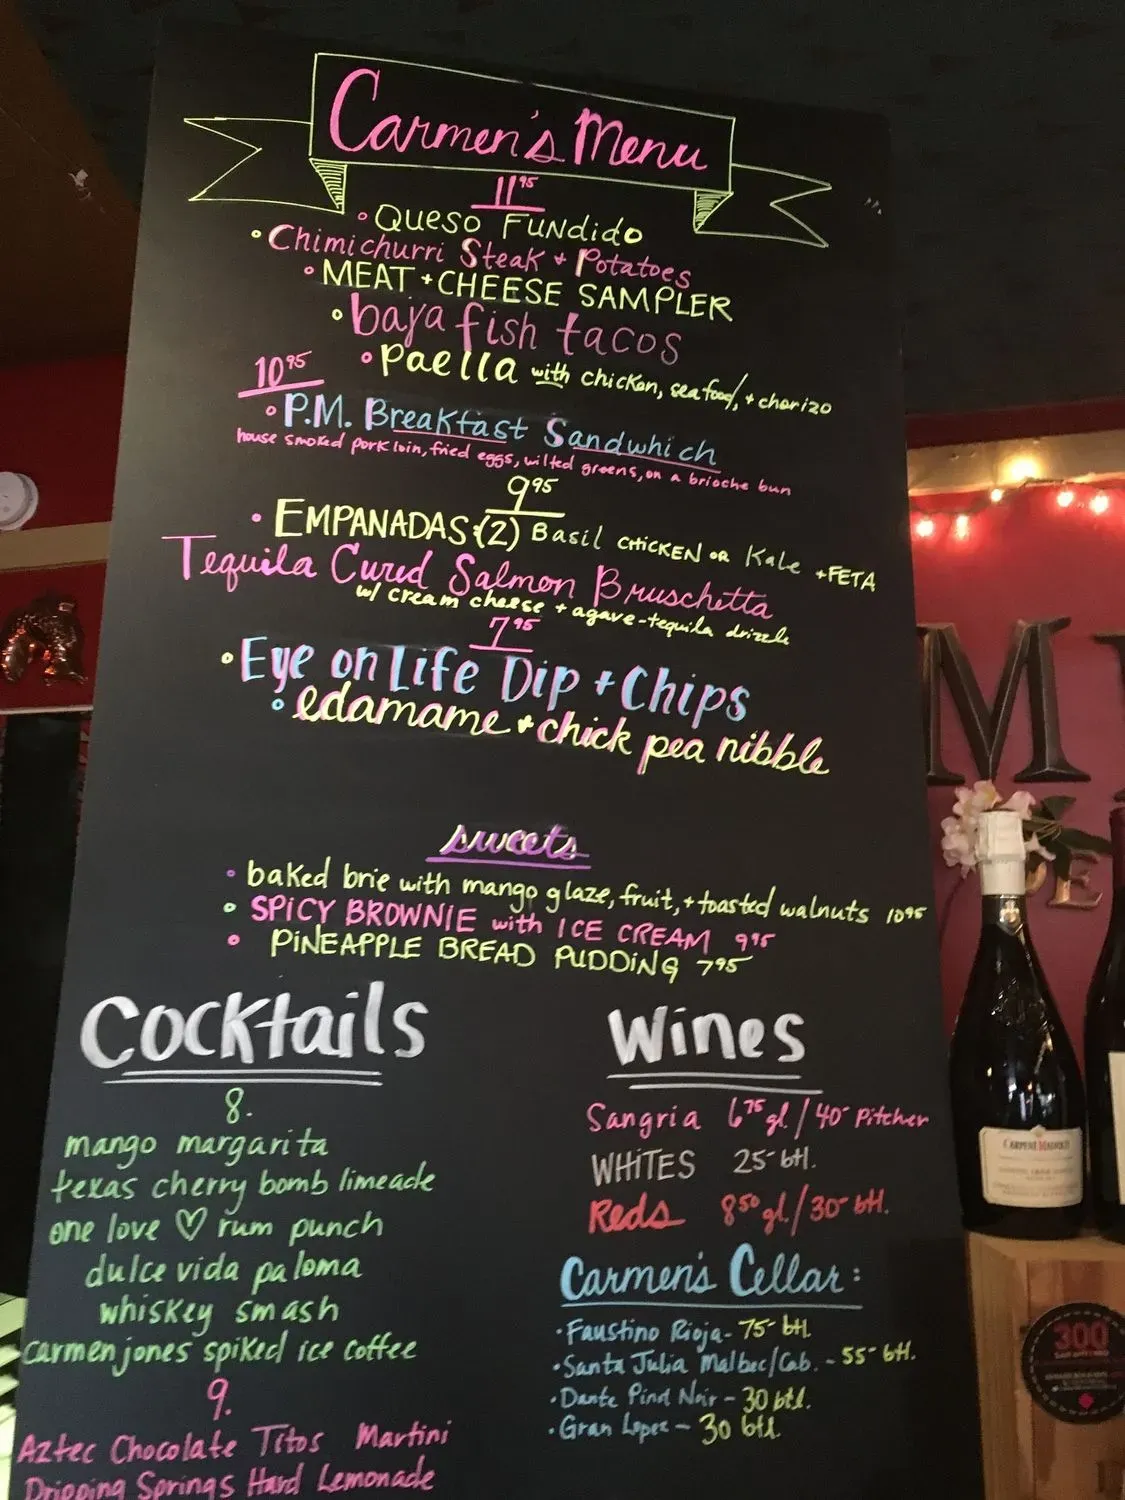 Carmen's Menu
11 95
• Queso Fundido
• Chimichurri Steak + Potatoes
• MEAT + CHEESE SAMPLER
• baja fish tacos
• Paella with chicken, seafood, + chorizo
10 95
• P.M. Breakfast Sandwhich
house smoked pork loin, fried eggs, wilted greens, on a brioche bun
9 95
• EMPANADAS: (2) Basil CHICKEN OR Kale + FETA
Tequila Cured Salmon Bruschetta
w/ cream cheese + agave-tequila drizzle
7 95
• Eye on Life Dip + Chips
• edamame + chick pea nibble
sweets
• baked brie with mango glaze, fruit, + toasted walnuts 10 95
• SPICY BROWNIE with ICE CREAM 9 95
• PINEAPPLE BREAD PUDDING 7 95
Cocktails
8.
mango margarita
texas cherry bomb limeade
one love ♡ rum punch
dulce vida paloma
whiskey smash
carmen jones spiked ice coffee
9.
Aztec Chocolate Titos Martini
Dripping Springs Hard Lemonade
Wines
Sangria 6 75 gl / 40- Pitcher
WHITES 25- btl.
Reds 8 50 gl / 30- btl.
Carmen's Cellar:
• Faustino Rioja - 75- btl.
• Santa Julia Malbec/Cab. - 55- btl.
• Dante Pinot Noir - 30 btl.
• Gran Lopez - 30 btl.
M
300